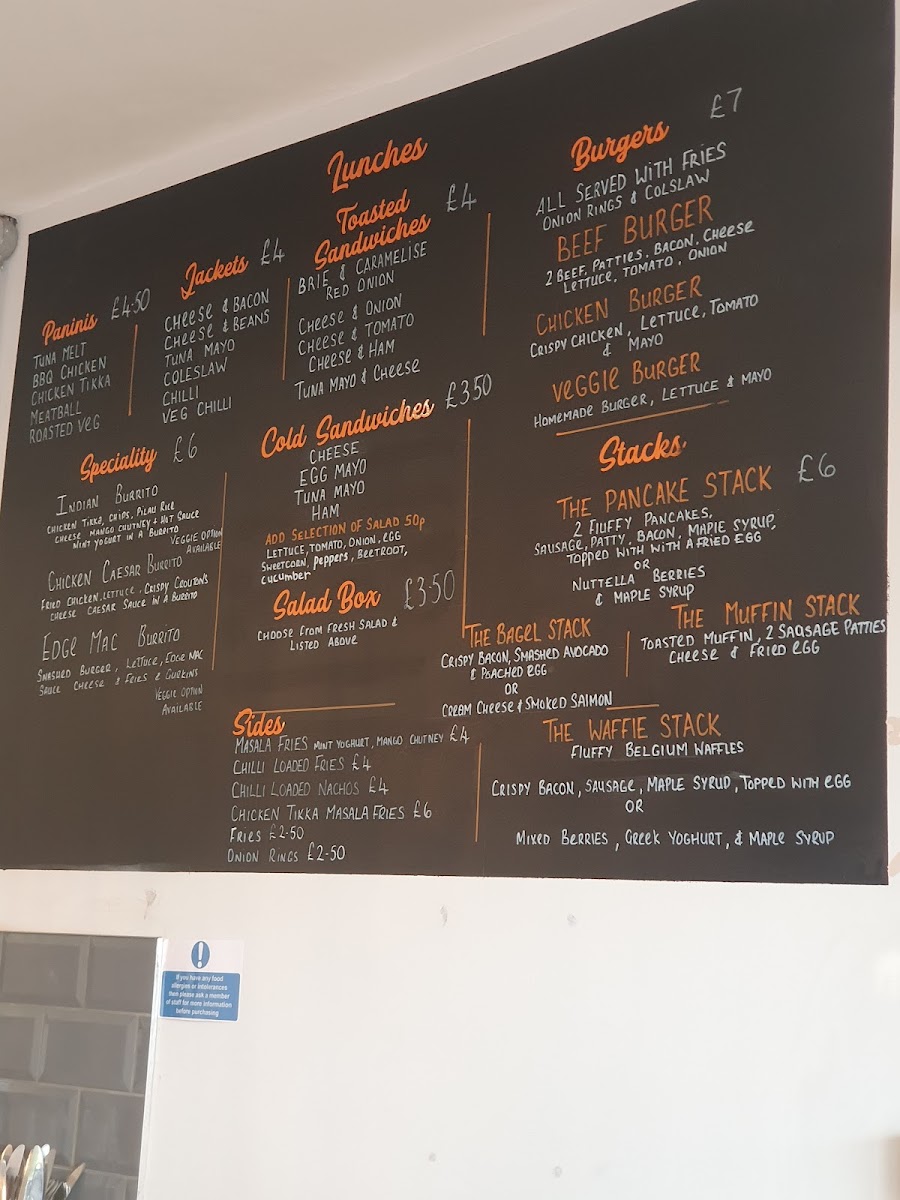 Lunches
Paninis £4.50
TUNA MELT
BBQ CHICKEN
CHICKEN TIKKA
MEATBALL
ROASTED VEG
Jackets £4
CHEESE & BACON
CHEESE & BEANS
TUNA MAYO
COLESLAW
CHILLI
VEG CHILLI
Toasted £4
Sandwiches
BRIE & CARAMELISE
RED ONION
CHEESE & ONION
CHEESE & TOMATO
CHEESE & HAM
TUNA MAYO & CHEESE
Burgers £7
ALL SERVED WITH FRIES
ONION RINGS & COLSLAW
BEEF BURGER
2 BEEF, PATTIES, BACON, CHEESE
LETTUCE, TOMATO, ONION
CHICKEN BURGER
CRISPY CHICKEN, LETTUCE, TOMATO
& MAYO
VEGGIE BURGER
HOMEMADE BURGER, LETTUCE & MAYO
Speciality £6
INDIAN BURRITO
CHICKEN TIKKA, CHIPS, PILAU RICE
CHEESE MANGO CHUTNEY + HOT SAUCE
MINT YOGURT IN A BURRITO
VEGGIE OPTION
AVAILABLE
CHICKEN CAESAR BURRITO
FRIED CHICKEN, LETTUCE, CRISPY CROUTONS
CHEESE CAESAR SAUCE IN A BURRITO
EDGE MAC BURRITO
SMASHED BURGER, LETTUCE, EDGE MAC
SAUCE CHEESE & FRIES & GURKINS
VEGGIE OPTION
AVAILABLE
Cold Sandwiches £3.50
CHEESE
EGG MAYO
TUNA MAYO
HAM
ADD SELECTION OF SALAD 50p
LETTUCE, TOMATO, ONION, EGG
SWEETCORN, PEPPERS, BEETROOT,
CUCUMBER
Salad Box £3.50
CHOOSE FROM FRESH SALAD &
LISTED ABOVE
Stacks.
THE PANCAKE STACK £6
2 FLUFFY PANCAKES,
SAUSAGE, PATTY, BACON, MAPLE SYRUP,
TOPPED WITH WITH A FRIED EGG
OR
NUTTELLA BERRIES
& MAPLE SYRUP
THE BAGEL STACK
CRISPY BACON, SMASHED AVOCADO
& POACHED EGG
OR
CREAM CHEESE & SMOKED SALMON
THE MUFFIN STACK
TOASTED MUFFIN, 2 SAQSAGE PATTIES
CHEESE & FRIED EGG
THE WAFFLE STACK
FLUFFY BELGIUM WAFFLES
CRISPY BACON, SAUSAGE, MAPLE SYRUP, TOPPED WITH EGG
OR
MIXED BERRIES, GREEK YOGHURT, & MAPLE SYRUP
Sides
MASALA FRIES MINT YOGHURT, MANGO CHUTNEY £4
CHILLI LOADED FRIES £4
CHILLI LOADED NACHOS £4
CHICKEN TIKKA MASALA FRIES £6
FRIES £2.50
ONION RINGS £2.50
If you have any food
allergies or intolerances
then please ask a member
of staff for more information
before purchasing